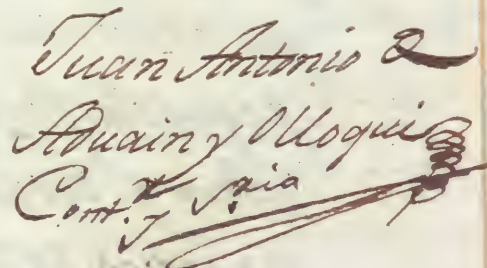 Juan Antonio de
Aduain y Olloqui
Cont.r y Srio